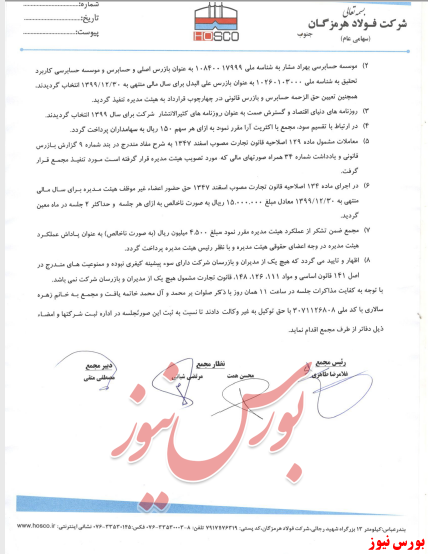 بسمه تعالی
شماره:
تاریخ:
پیوست:
شرکت فولاد هرمزگان
جنوب
(سهامی عام)
HOSCO
۲) موسسه حسابرسی بهراد مشار به شناسه ملی ۱۰۸۴۰۰۱۷۹۹۹ به عنوان بازرس اصلی و حسابرس و موسسه حسابرسی کاربرد
تحقیق به شناسه ملی ۱۰۲۶۰۱۰۳۰۰۰ به عنوان بازرس علی البدل برای سال مالی منتهی به ۱۳۹۹/۱۲/۳۰ انتخاب گردیدند.
همچنین تعیین حق الزحمه حسابرس و بازرس قانونی در چهارچوب قرارداد به هیئت مدیره تنفیذ گردید.
۳) روزنامه های دنیای اقتصاد و گسترش صمت به عنوان روزنامه های کثیرالانتشار شرکت برای سال ۱۳۹۹ انتخاب گردیدند.
۴) در ارتباط با تقسیم سود، مجمع با اکثریت آرا مقرر نمود به ازای هر سهم ۱۵۰ ریال به سهامداران پرداخت گردد.
۵) معاملات مشمول ماده ۱۲۹ اصلاحیه قانون تجارت مصوب اسفند ۱۳۴۷ به شرح مفاد مندرج در بند شماره ۹ گزارش بازرس
قانونی و یادداشت شماره ۳۴ همراه صورتهای مالی که مورد تصویب هیئت مدیره قرار گرفته است مورد تنفیذ مجمع قرار
گرفت.
۶) در اجرای ماده ۱۳۴ اصلاحیه قانون تجارت مصوب اسفند ۱۳۴۷ حق حضور اعضاء غیر موظف هیئت مدیره برای سال مالی
منتهی به ۱۳۹۹/۱۲/۳۰ معادل مبلغ ۱۵.۰۰۰.۰۰۰ ریال به صورت ناخالص به ازای هر جلسه و حداکثر ۲ جلسه در ماه معین
گردید.
۷) مجمع ضمن تشکر از عملکرد هیئت مدیره مقرر نمود مبلغ ۴.۵۰۰ میلیون ریال (به صورت ناخالص) به عنوان پاداش عملکرد
هیئت مدیره در وجه اعضای حقوقی هیئت مدیره و با نظر رئیس هیئت مدیره پرداخت گردد.
۸) اظهار و تایید می گردد که هیچ یک از مدیران و بازرسان شرکت دارای سوء پیشینه کیفری نبوده و ممنوعیت های مندرج در
اصل ۱۴۱ قانون اساسی و مواد ۱۱۱، ۱۲۶، ۱۴۸، قانون تجارت مشمول هیچ یک از مدیران و بازرسان شرکت نمی باشد.
با توجه به کفایت مذاکرات جلسه در ساعت ۱۱ همان روز با ذکر صلوات بر محمد و آل محمد خاتمه یافت و مجمع به خانم زهره
سالاری با کد ملی ۳۰۷۱۱۲۶۸۰۸ با حق توکیل به غیر وکالت دادند تا نسبت به ثبت این صورتجلسه در اداره ثبت شرکتها و امضاء
ذیل دفاتر از طرف مجمع اقدام نماید.
رئیس مجمع
نظار مجمع
دبیر مجمع
غلامرضا طاهری
محسن همت
مرتضی
مصطفی متقی
بورس نیوز
بندرعباس: کیلومتر ۱۳ بزرگراه شهید رجائی، شرکت فولاد هرمزگان، کد پستی: ۷۹۱۷۱۷۶۳۱۹ تلفن: ۸-۰۷۶-۳۳۵۳۰۰۰۲ فکس: ۰۷۶-۳۳۵۳۰۱۴۵ نشانی اینترنتی: www.hosco.ir
بورس نیوز